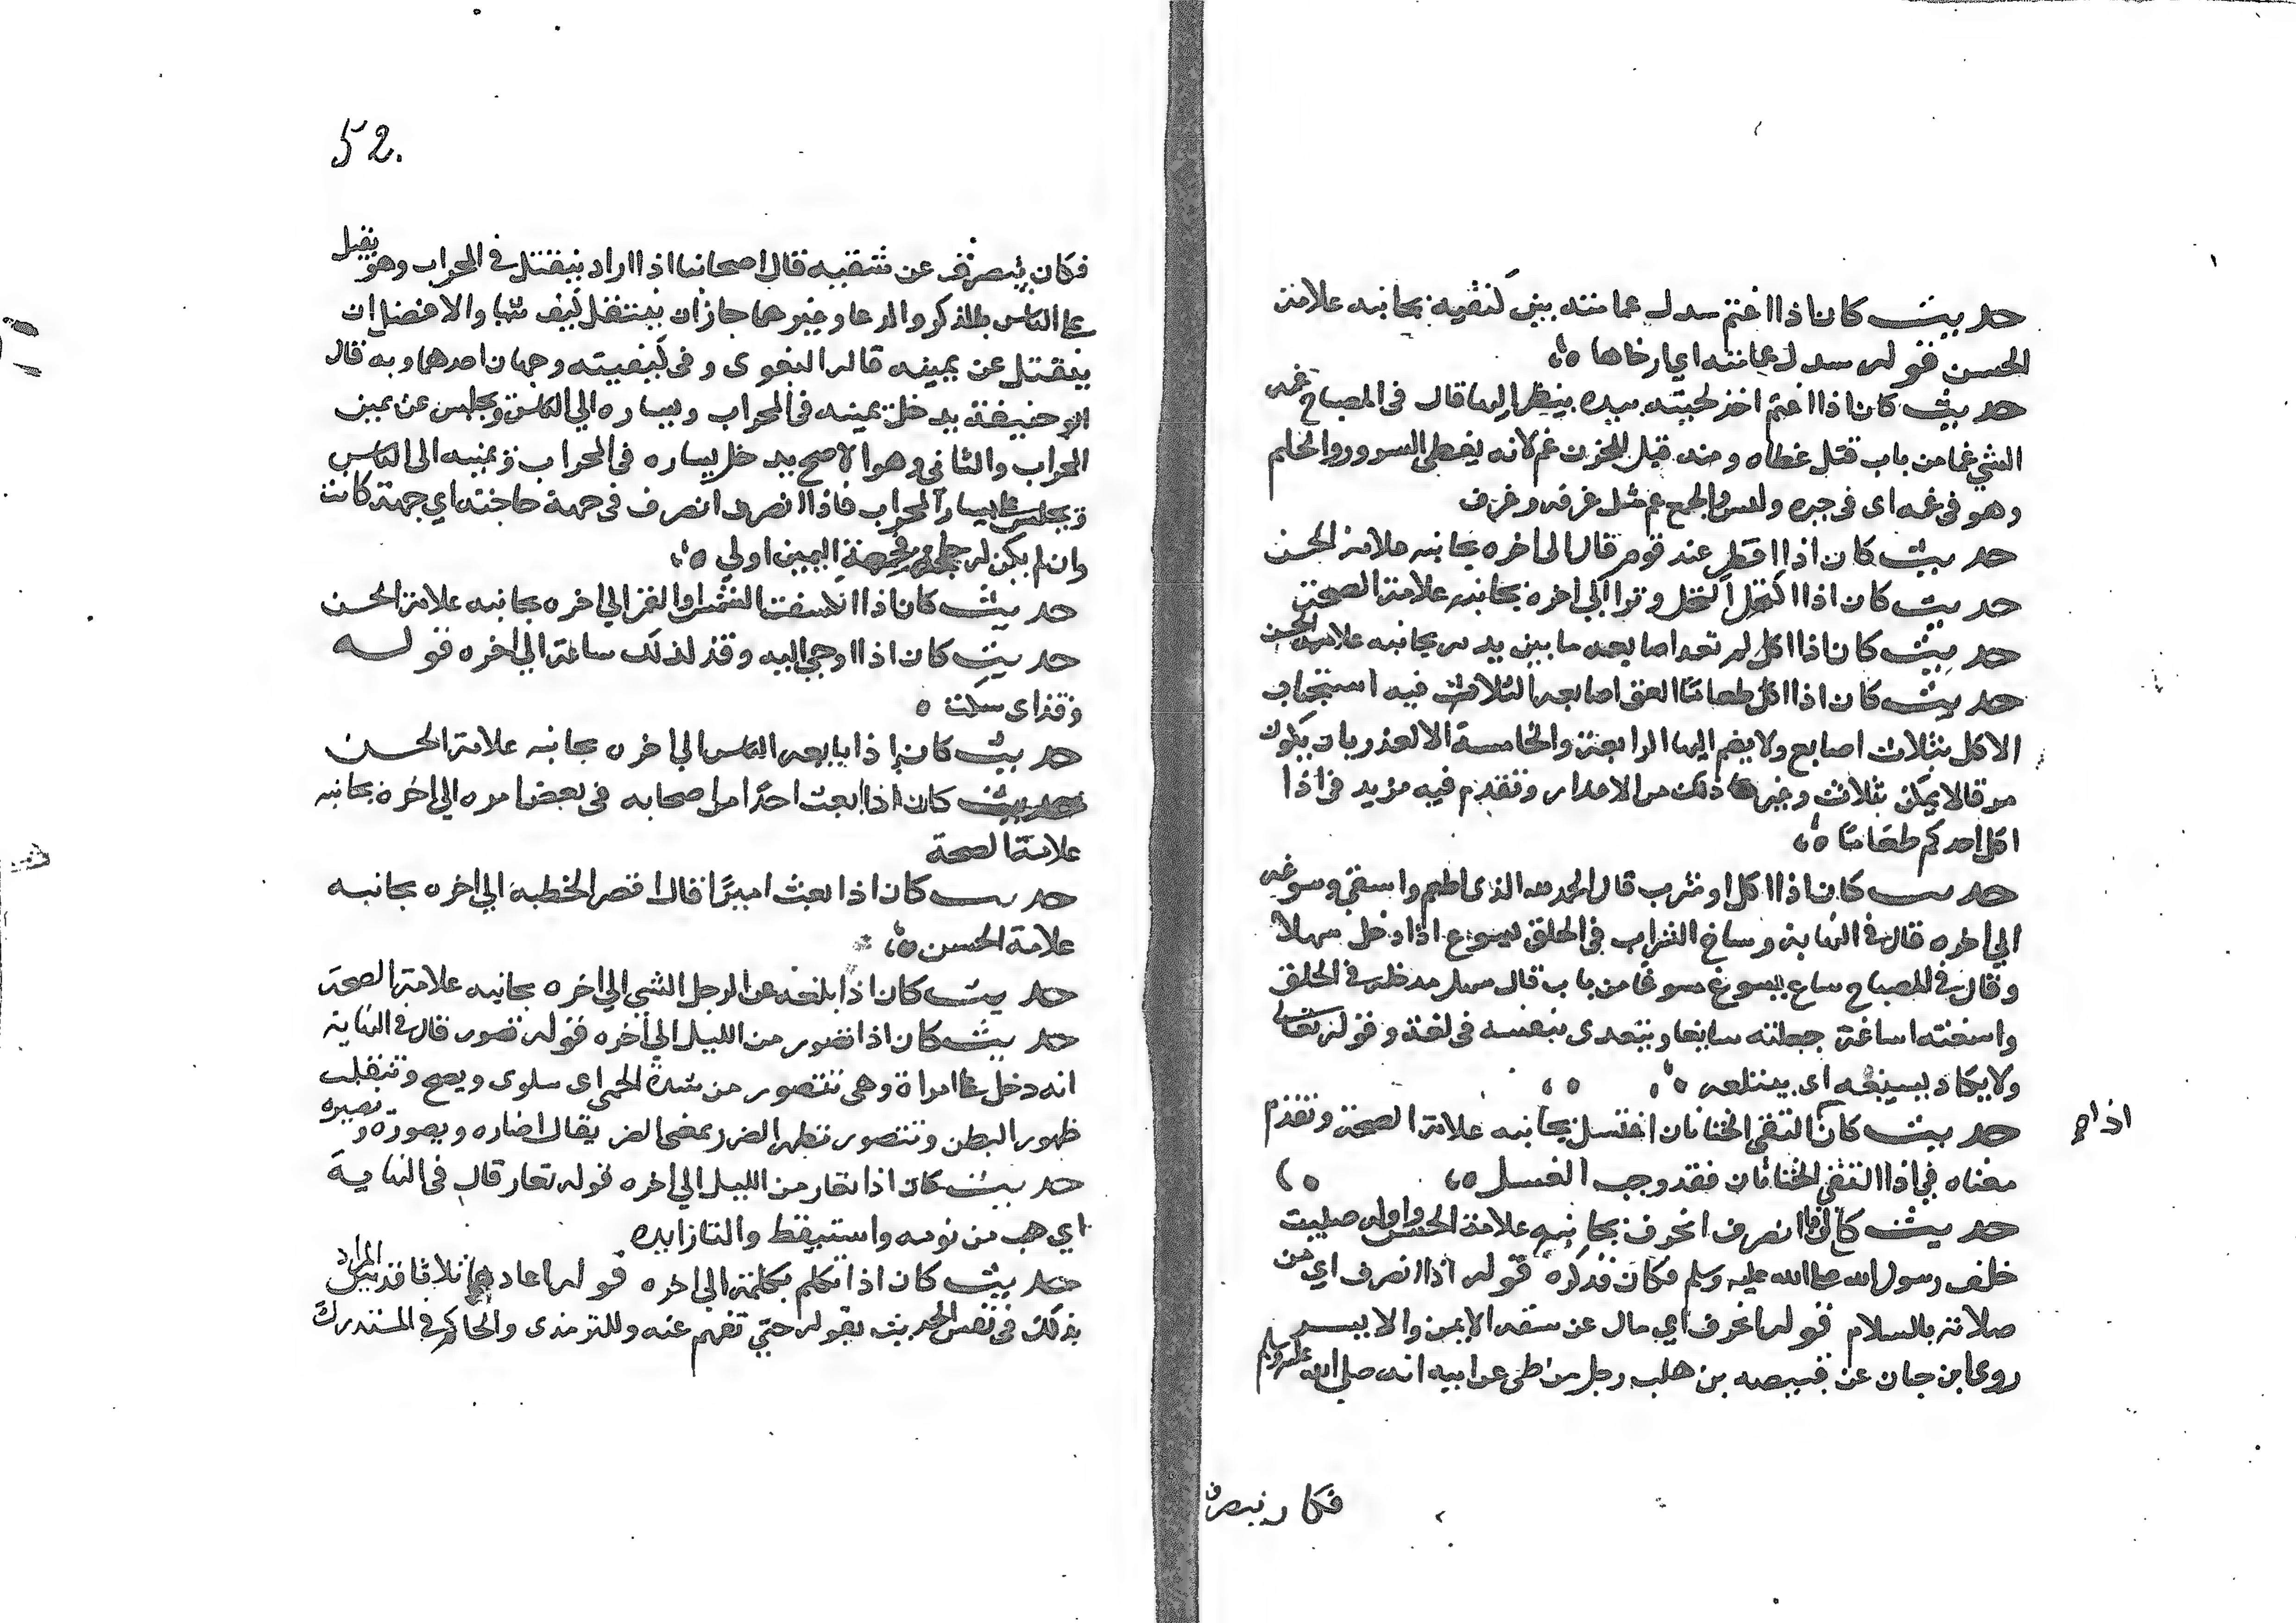 حديث كان اذا اعتم سدل عمامته بين كتفيه بجانبه علامة
الحسن قوله سدل عمامته اي ارخاها ه
حديث كان اذا اغتم اخذ لحيته بيده ينظر اليها قال في المصباح غمه
الشي غما من باب قتل غطاه ومنه قيل للحزن غم لانه يغطي السرور والحلم
وهو في غمه اى فى حيره ولبس والجمع غمم مثل غرفه وغرف
حديث كان اذا افطر عند قوم قال الى اخره بجانبه علامة الحسن
حديث كان اذا اكتحل اكتحل وترا الي اخره بجانبه علامة الصحة
حديث كان اذا اكل لم تعد اصابعه ما بين يديه بجانبه علامة الحسن
حديث كان اذا اكل طعاما لعق اصابعه الثلاث فيه استحباب
الاكل بثلاث اصابع ولا يضم اليها الرابعة والخامسة الا لعذر بان يكون
مرقا لا يمكن بثلاث وغير ذلك من الاعذار وتقدم فيه مزيد في اذا
اكل احدكم طعاما ه
حديث كان اذا اكل او شرب قال الحمد لله الذى اطعم واسقي وسوغه
الي اخره قال في النهاية وساغ الشراب في الحلق يسوغ اذا دخل سهلا
وقال في المصباح ساغ يسوغ سوغا من باب قال سهل مدخله في الحلق
واسغته اساغة جعلته سايغا ويتعدى بنفسه فى لغة وقوله تعالى
ولا يكاد يسيغه اى يبتلعه ه
حديث كان التقى الختانان اغتسل بجانبه علامة الصحة وتقدم
اذا صح
معناه في اذا التقى الختانان فقد وجب الغسل ه
حديث كان اذا انصرف انحرف بجانبه علامة الحسن واوله صليت
خلف رسول الله صلى الله عليه وسلم فكان فذكره قوله اذا انصرف اي من
صلاته بالسلام قوله انحرف اي مال عن شقه الايمن والايسر
روى ابن حبان عن قبيصه بن هلب رجل من طى عن ابيه انه صلى الله عليه وسلم
فكان ينصرف
52.
فكان ينصرف عن شقيه قال اصحابنا اذا اراد ينفتل في المحراب وهو يقبل
على الناس بالذكر والدعا وغيرهما جاز ان ينتقل كيف شا والافضل ان
ينفتل عن يمينه قاله البغوى وفى كيفيته وجهان احدهما وبه قال
ابو حنيفة يدخل يمينه فى المحراب ويساره الي الناس ويجلس عن يمين
المحراب والثانى وهو الاصح يدخل يساره فى المحراب ويمينه الى الناس
ويجلس على يسار المحراب فاذا انصرف انصرف فى جهة حاجته اي جهة كانت
وان لم يكن له حاجة فجهة اليمين اولي ه
حديث كان اذا انكسفت الشمس او القمر الي اخره بجانبه علامة الحسن
حديث كان اذا اوحي اليه وقذ لذلك ساعة الي اخره قوله
وقذ اى سكت ه
حديث كان اذا بايعه الناس الي اخره بجانبه علامة الحسن
حديث كان اذا بعث احدا من اصحابه فى بعض امره الي اخره بجانبه
علامة الصحة
حديث كان اذا بعث اميرا قال اقصر الخطبة الي اخره بجانبه
علامة الحسن ه
حديث كان اذا بلغه عن الرجل الشي الي اخره بجانبه علامة الصحة
حديث كان اذا تضور من الليل الي اخره قوله تضور قال في النهاية
انه دخل على امراة وهى تتضور من شدة الحمى اى تتلوى وتصح وتتقلب
ظهور البطن وتتضور تظهر الضر بمعنى الضر يقال اضاره ويضوره ويضيره
حديث كان اذا تعار من الليل الي اخره قوله تعار قال فى النهاية
اي هب من نومه واستيقظ والتا زايده
حديث كان اذا تكلم بكلمة الى اخره قوله اعادها ثلاثا قد بين المراد
بذلك فى نفس الحديث بقوله حتي تفهم عنه وللترمذى والحاكم في المستدرك